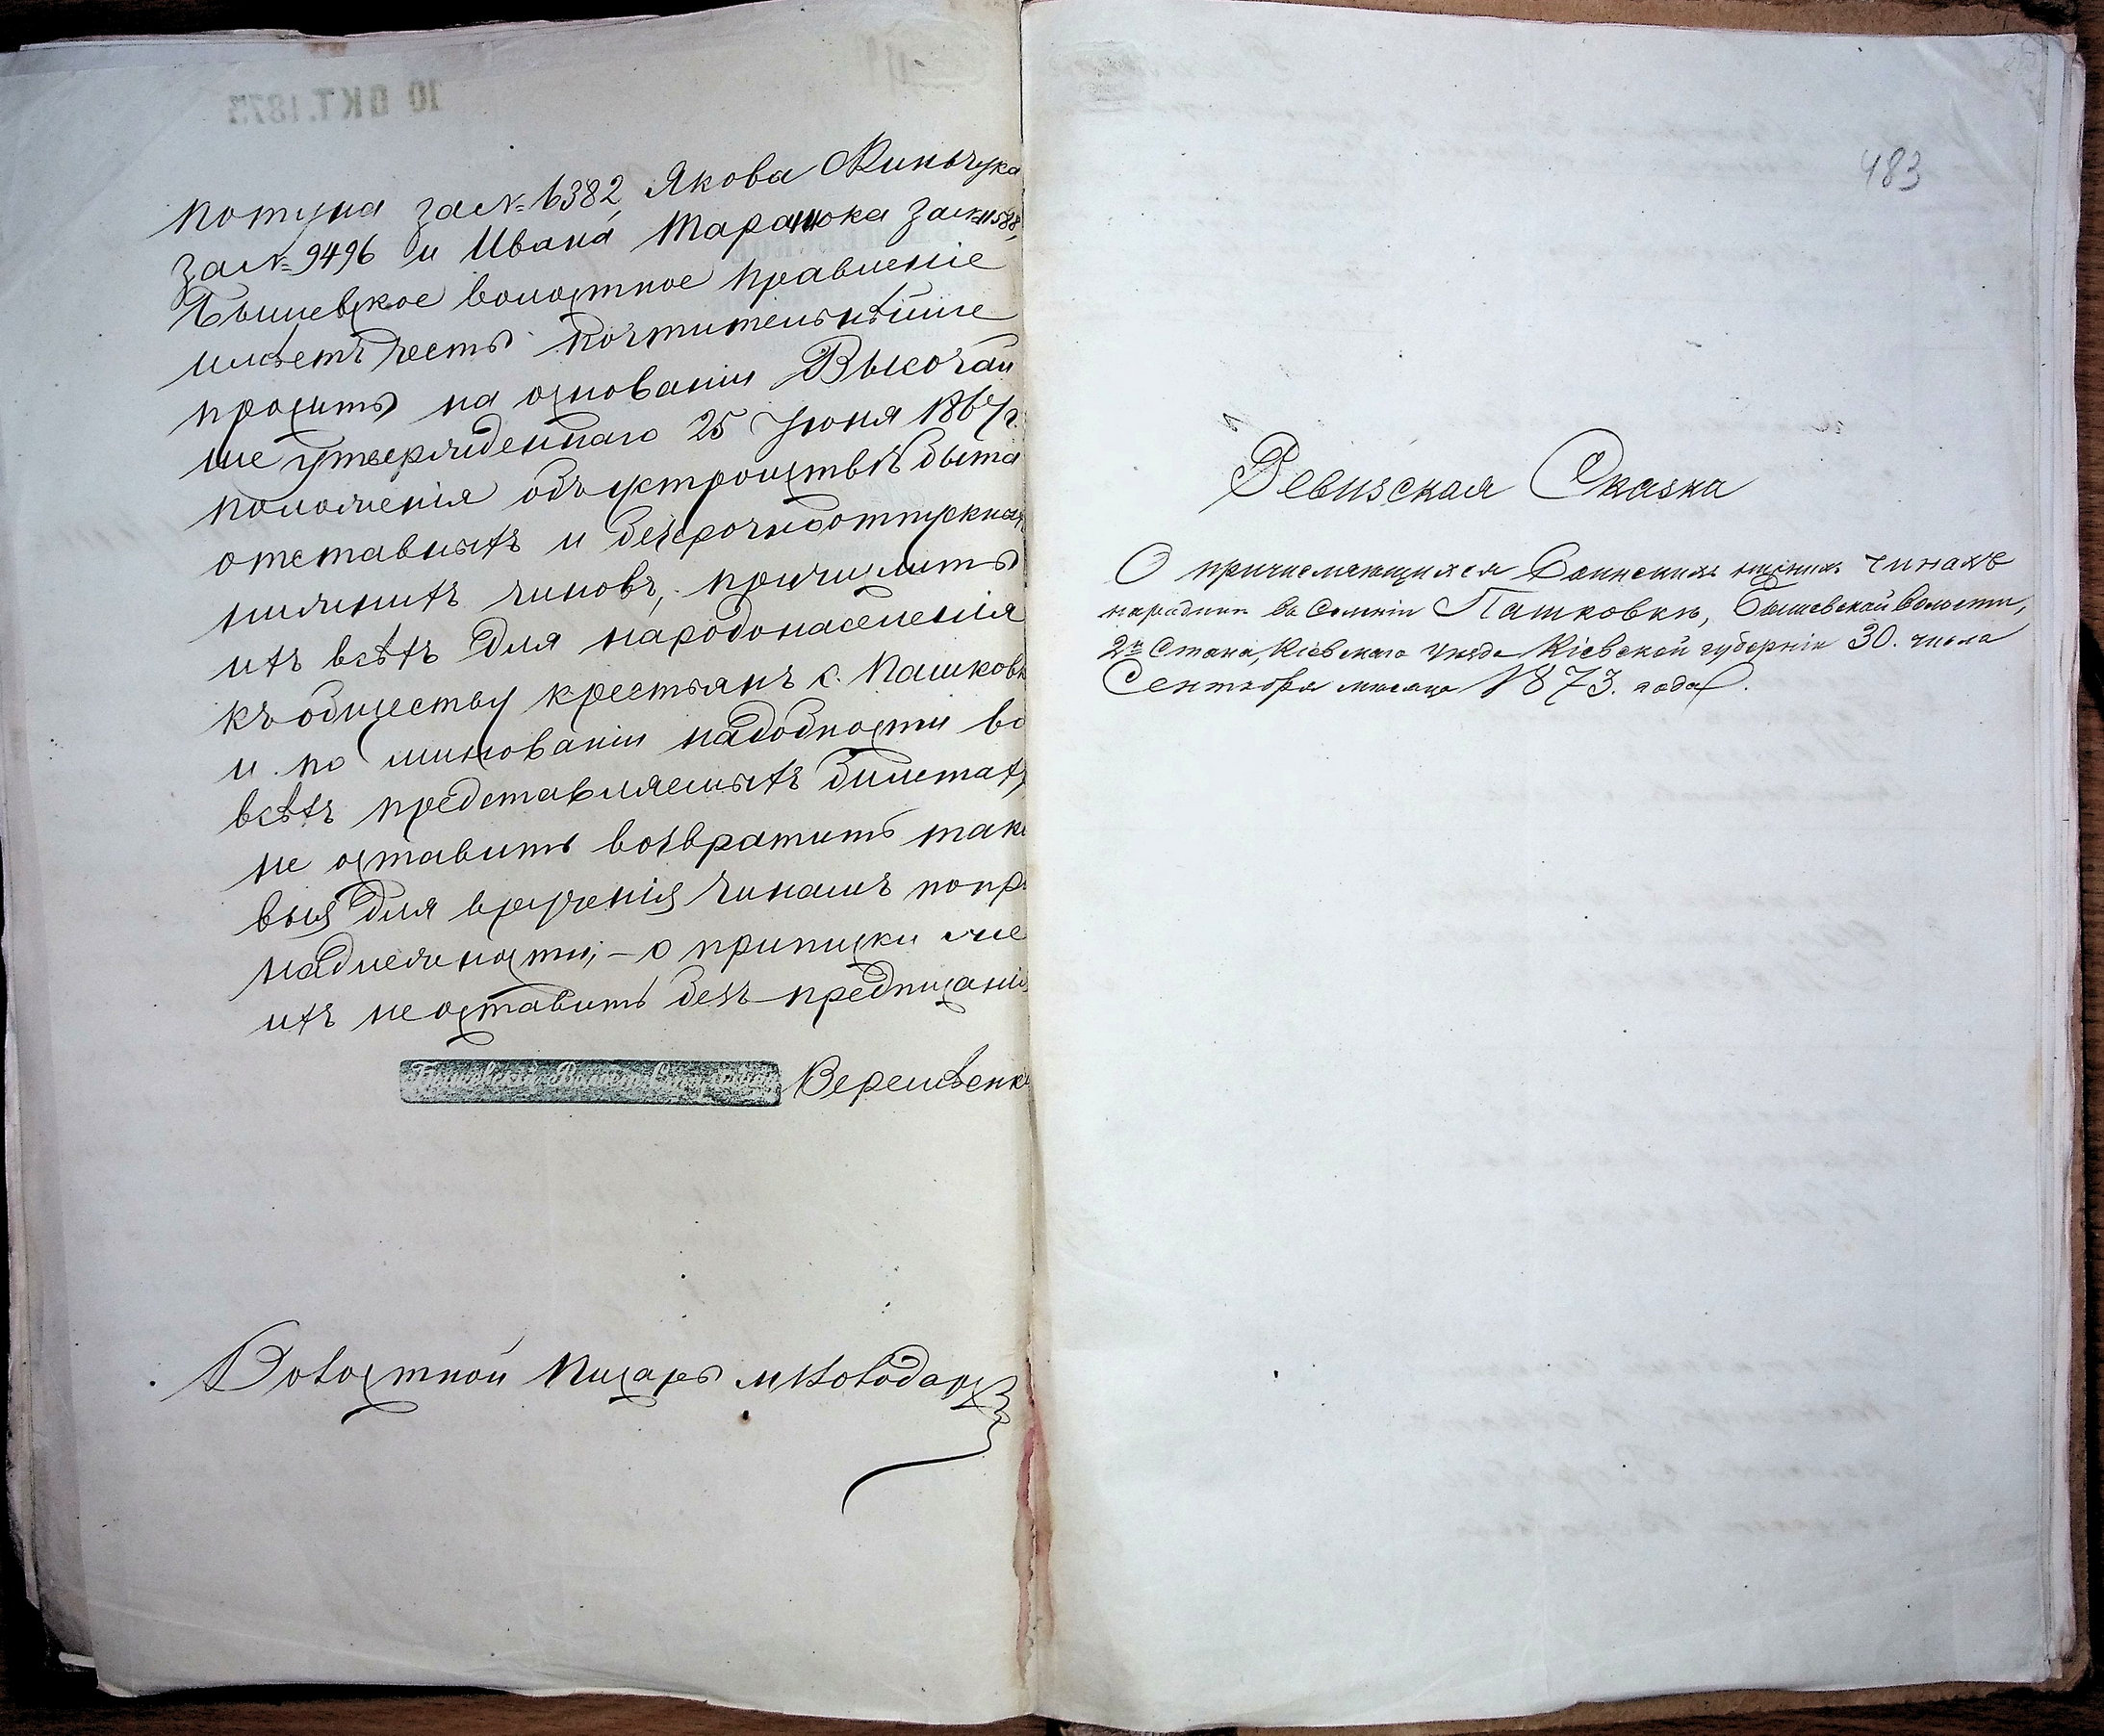 10 ОКТ. 1873
Потуна за № 6382, Якова Жинчука
за № 9496 и Ивана Таранюка за № 11588,
Бышевское волостное правленіе
имѣетъ честь почтительнѣйше
просить на основаніи Высочай
ше утвержденнаго 25 Іюня 1867 г.
положенія объ устройствѣ быта
отставныхъ и безсрочноотпускных
нижнихъ чиновъ, причислить
ихъ всѣхъ для народонаселенія
къ обществу крестьянъ с. Пашковк
и по минованіи надобности во
всѣхъ представляемыхъ билетах
не оставить возвратить тако
выя для врученія чинамъ попри
надлежности; – о приписки же
ихъ не оставить безъ предписанія
Бышевскій Волост. Старшина
Волостной Писарь
483
Ревизская Сказка
О причисляющихся Воинских нижних чинахъ
народии въ Селеніи Пашковки, Бышевской волости,
2го Стана, Кіевскаго уезда Кіевской губерніи 30. числа
Сентября месяца 1873. года.